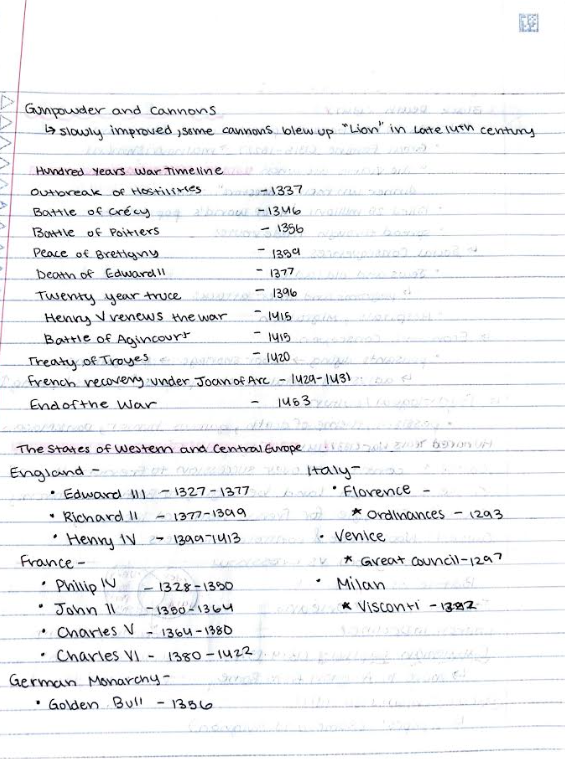 Gunpowder and Cannons
↳ slowly improved, some cannons blew up "Lion" in late 14th century
Hundred Years War Timeline
Outbreak of Hostilities - 1337
Battle of Crécy - 1346
Battle of Poitiers - 1356
Peace of Bretigny - 1359
Death of Edward II - 1377
Twenty year truce - 1396
Henry V renews the war - 1415
Battle of Agincourt - 1415
Treaty of Troyes - 1420
French recovery under Joan of Arc - 1429-1431
End of the War - 1453
The States of Western and Central Europe
England -
• Edward III - 1327-1377
• Richard II - 1377-1399
• Henry IV - 1399-1413
France -
• Philip IV - 1328-1350
• John II - 1350-1364
• Charles V - 1364-1380
• Charles VI - 1380-1422
German Monarchy -
• Golden Bull - 1356
Italy -
• Florence -
★ Ordinances - 1293
• Venice
★ Great Council - 1297
• Milan
★ Visconti -